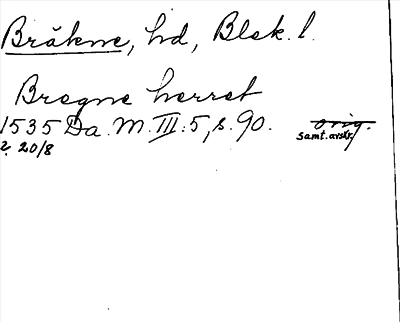 Bräkne, hd, Blek. l.
Bregne herret
1535 Da. M. III:5, s. 90. orig.
samt. avskr.
2. 20/8